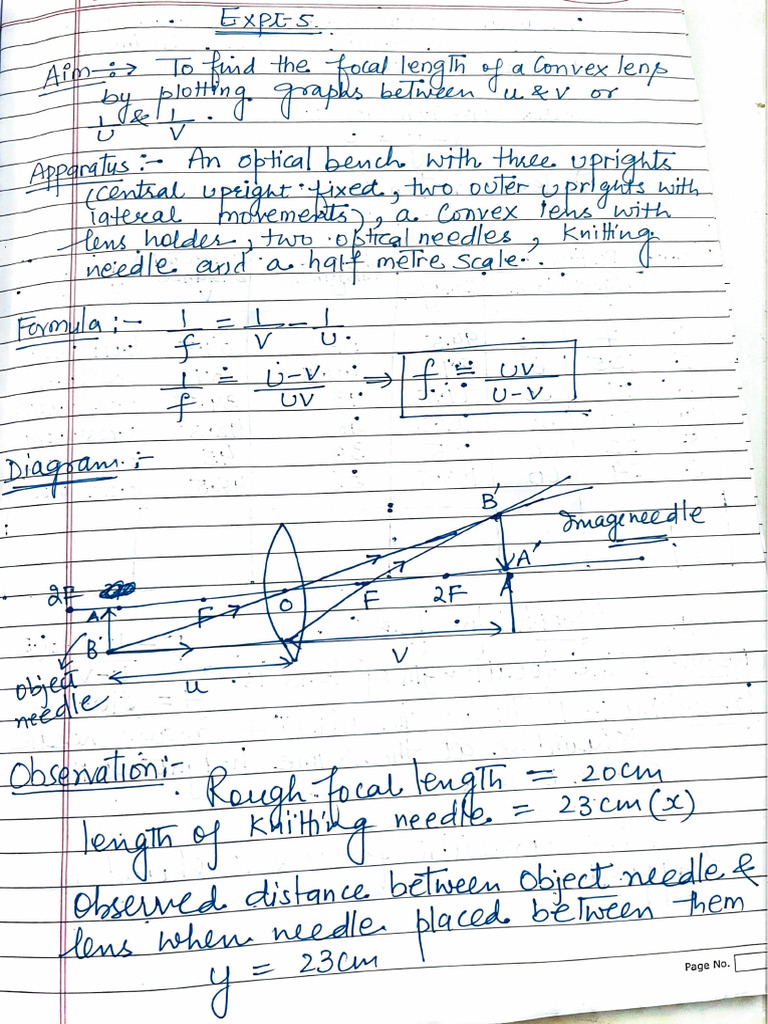 Expt-5
Aim :→ To find the focal length of a convex lens
by plotting graphs between u & v or
1/U & 1/V .
Apparatus :- An optical bench with three uprights
(central upright fixed, two outer uprights with
lateral movements), a convex lens with
lens holder, two optical needles, knitting
needle and a half metre scale.
Formula :- 1/f = 1/V - 1/U.
1/f = U-V/UV ⇒ f = UV/U-V
Diagram :-
B'
Image needle
A'
2F
A
F
O
F
2F
A
B
V
object
needle
u
Observation :- Rough focal length = 20cm
length of knitting needle = 23cm (x)
Observed distance between object needle &
lens when needle placed between them
y = 23cm
Page No.